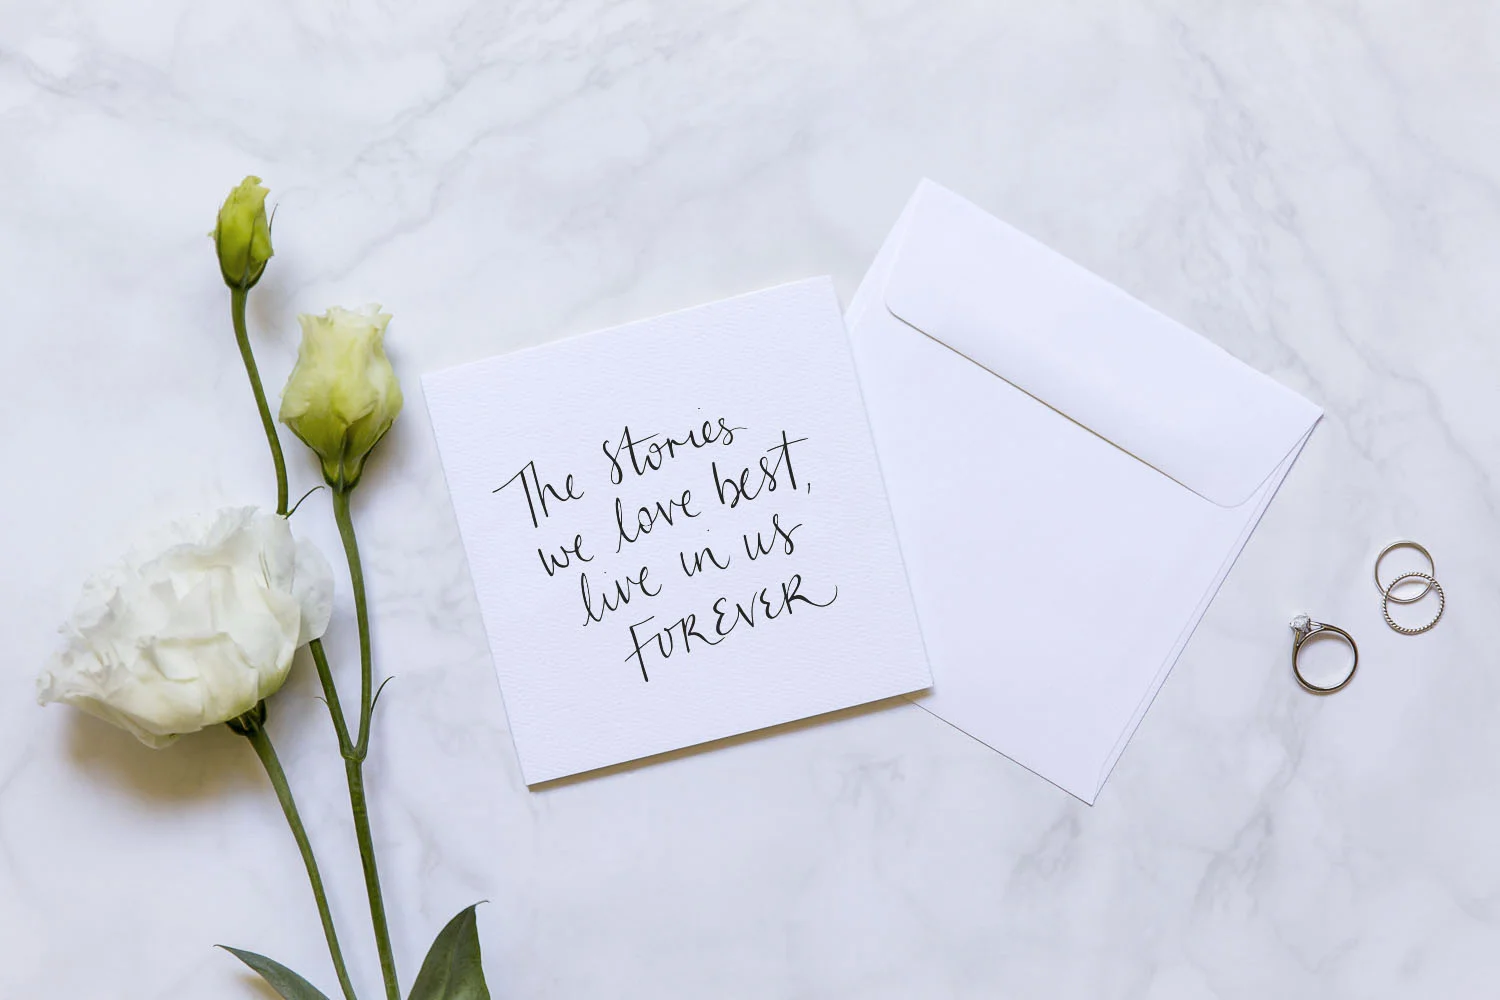 The stories
we love best,
live in us
FOREVER